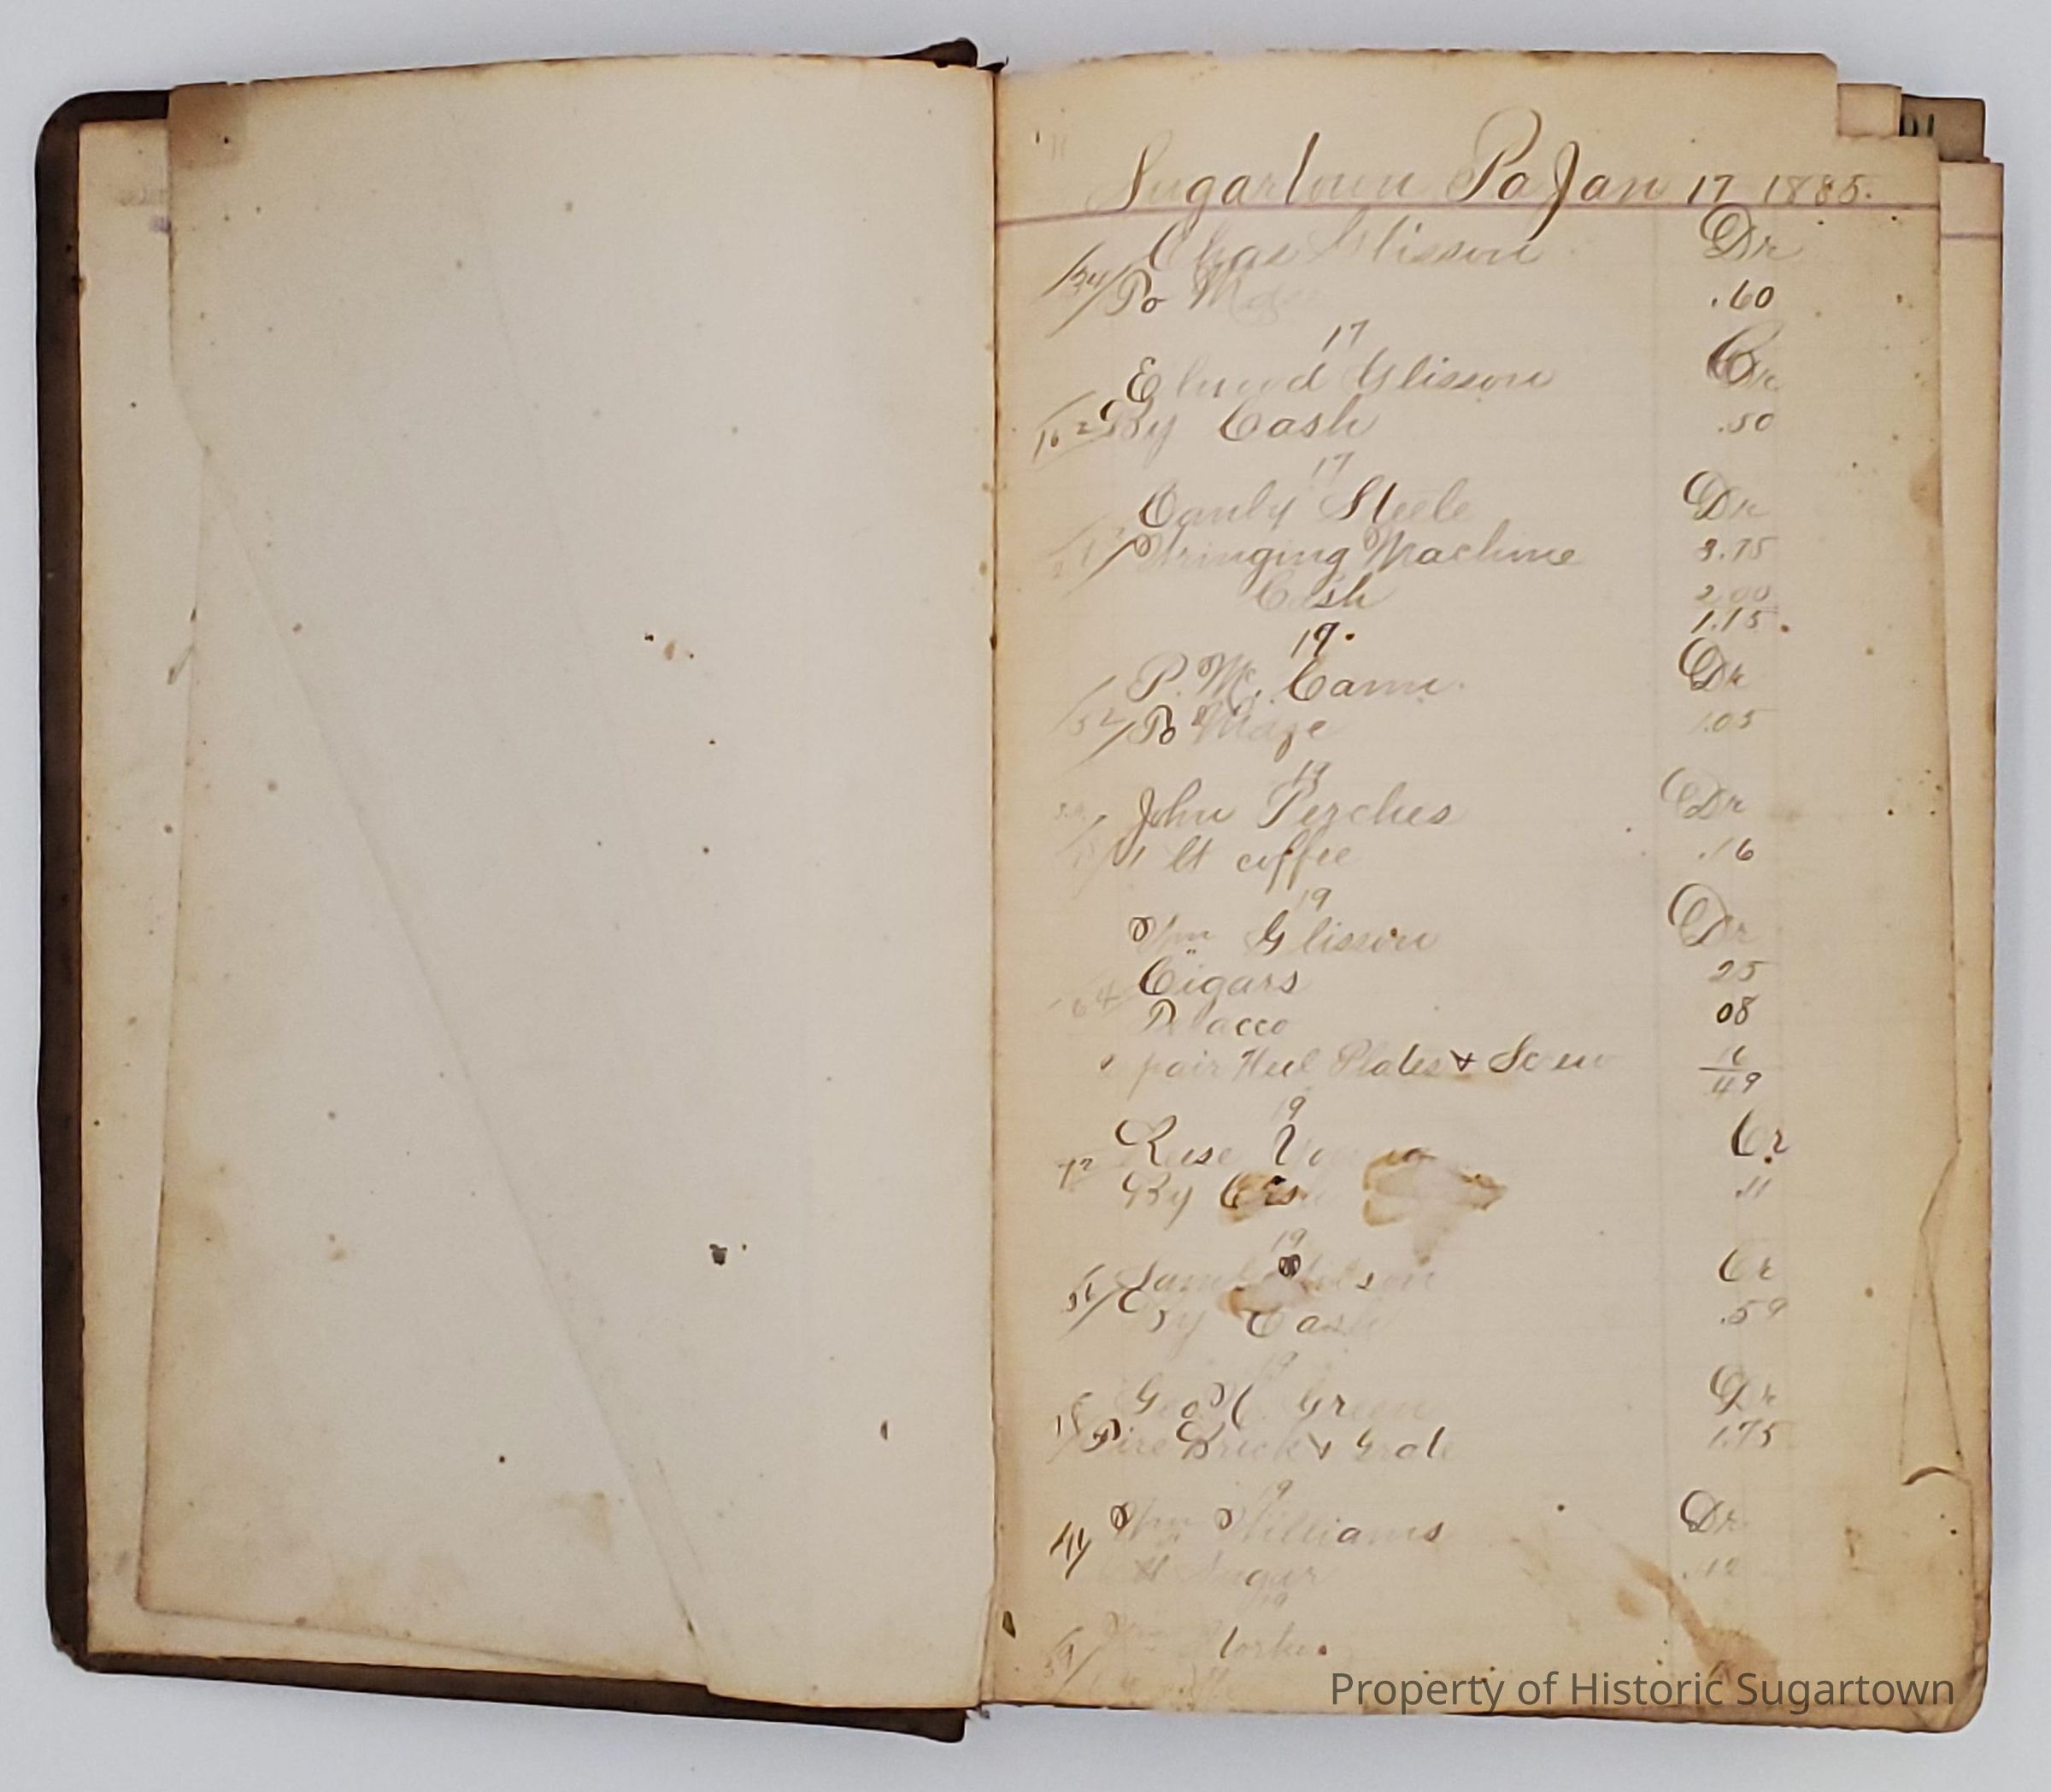 Sugartown Pa Jan 17 1885.
Chas Glisson Dr
134/ To Mdze .60
17
Elwood Glisson Cr
162 By Cash .50
17
Canby Steele Dr
Wringing Machine 3.75
Cash 2.00
1.75
19.
P. Mc. Cann. Dr
132/ To Mdze 1.05
19
John Perches Dr
1 lb coffee .16
19
Wm Glisson Dr
64 Cigars 25
Tobacco 08
1 pair Heel Plates & Screw 16
49
19
72 Reese Young Cr
By Cash .11
19
51/ Saml Wilson Cr
By Cash .59
19
Geo H. Green Dr
Fire Brick & Grate 1.75
19
44 Wm Williams Dr
lb Sugar .12
19
Wm
Property of Historic Sugartown